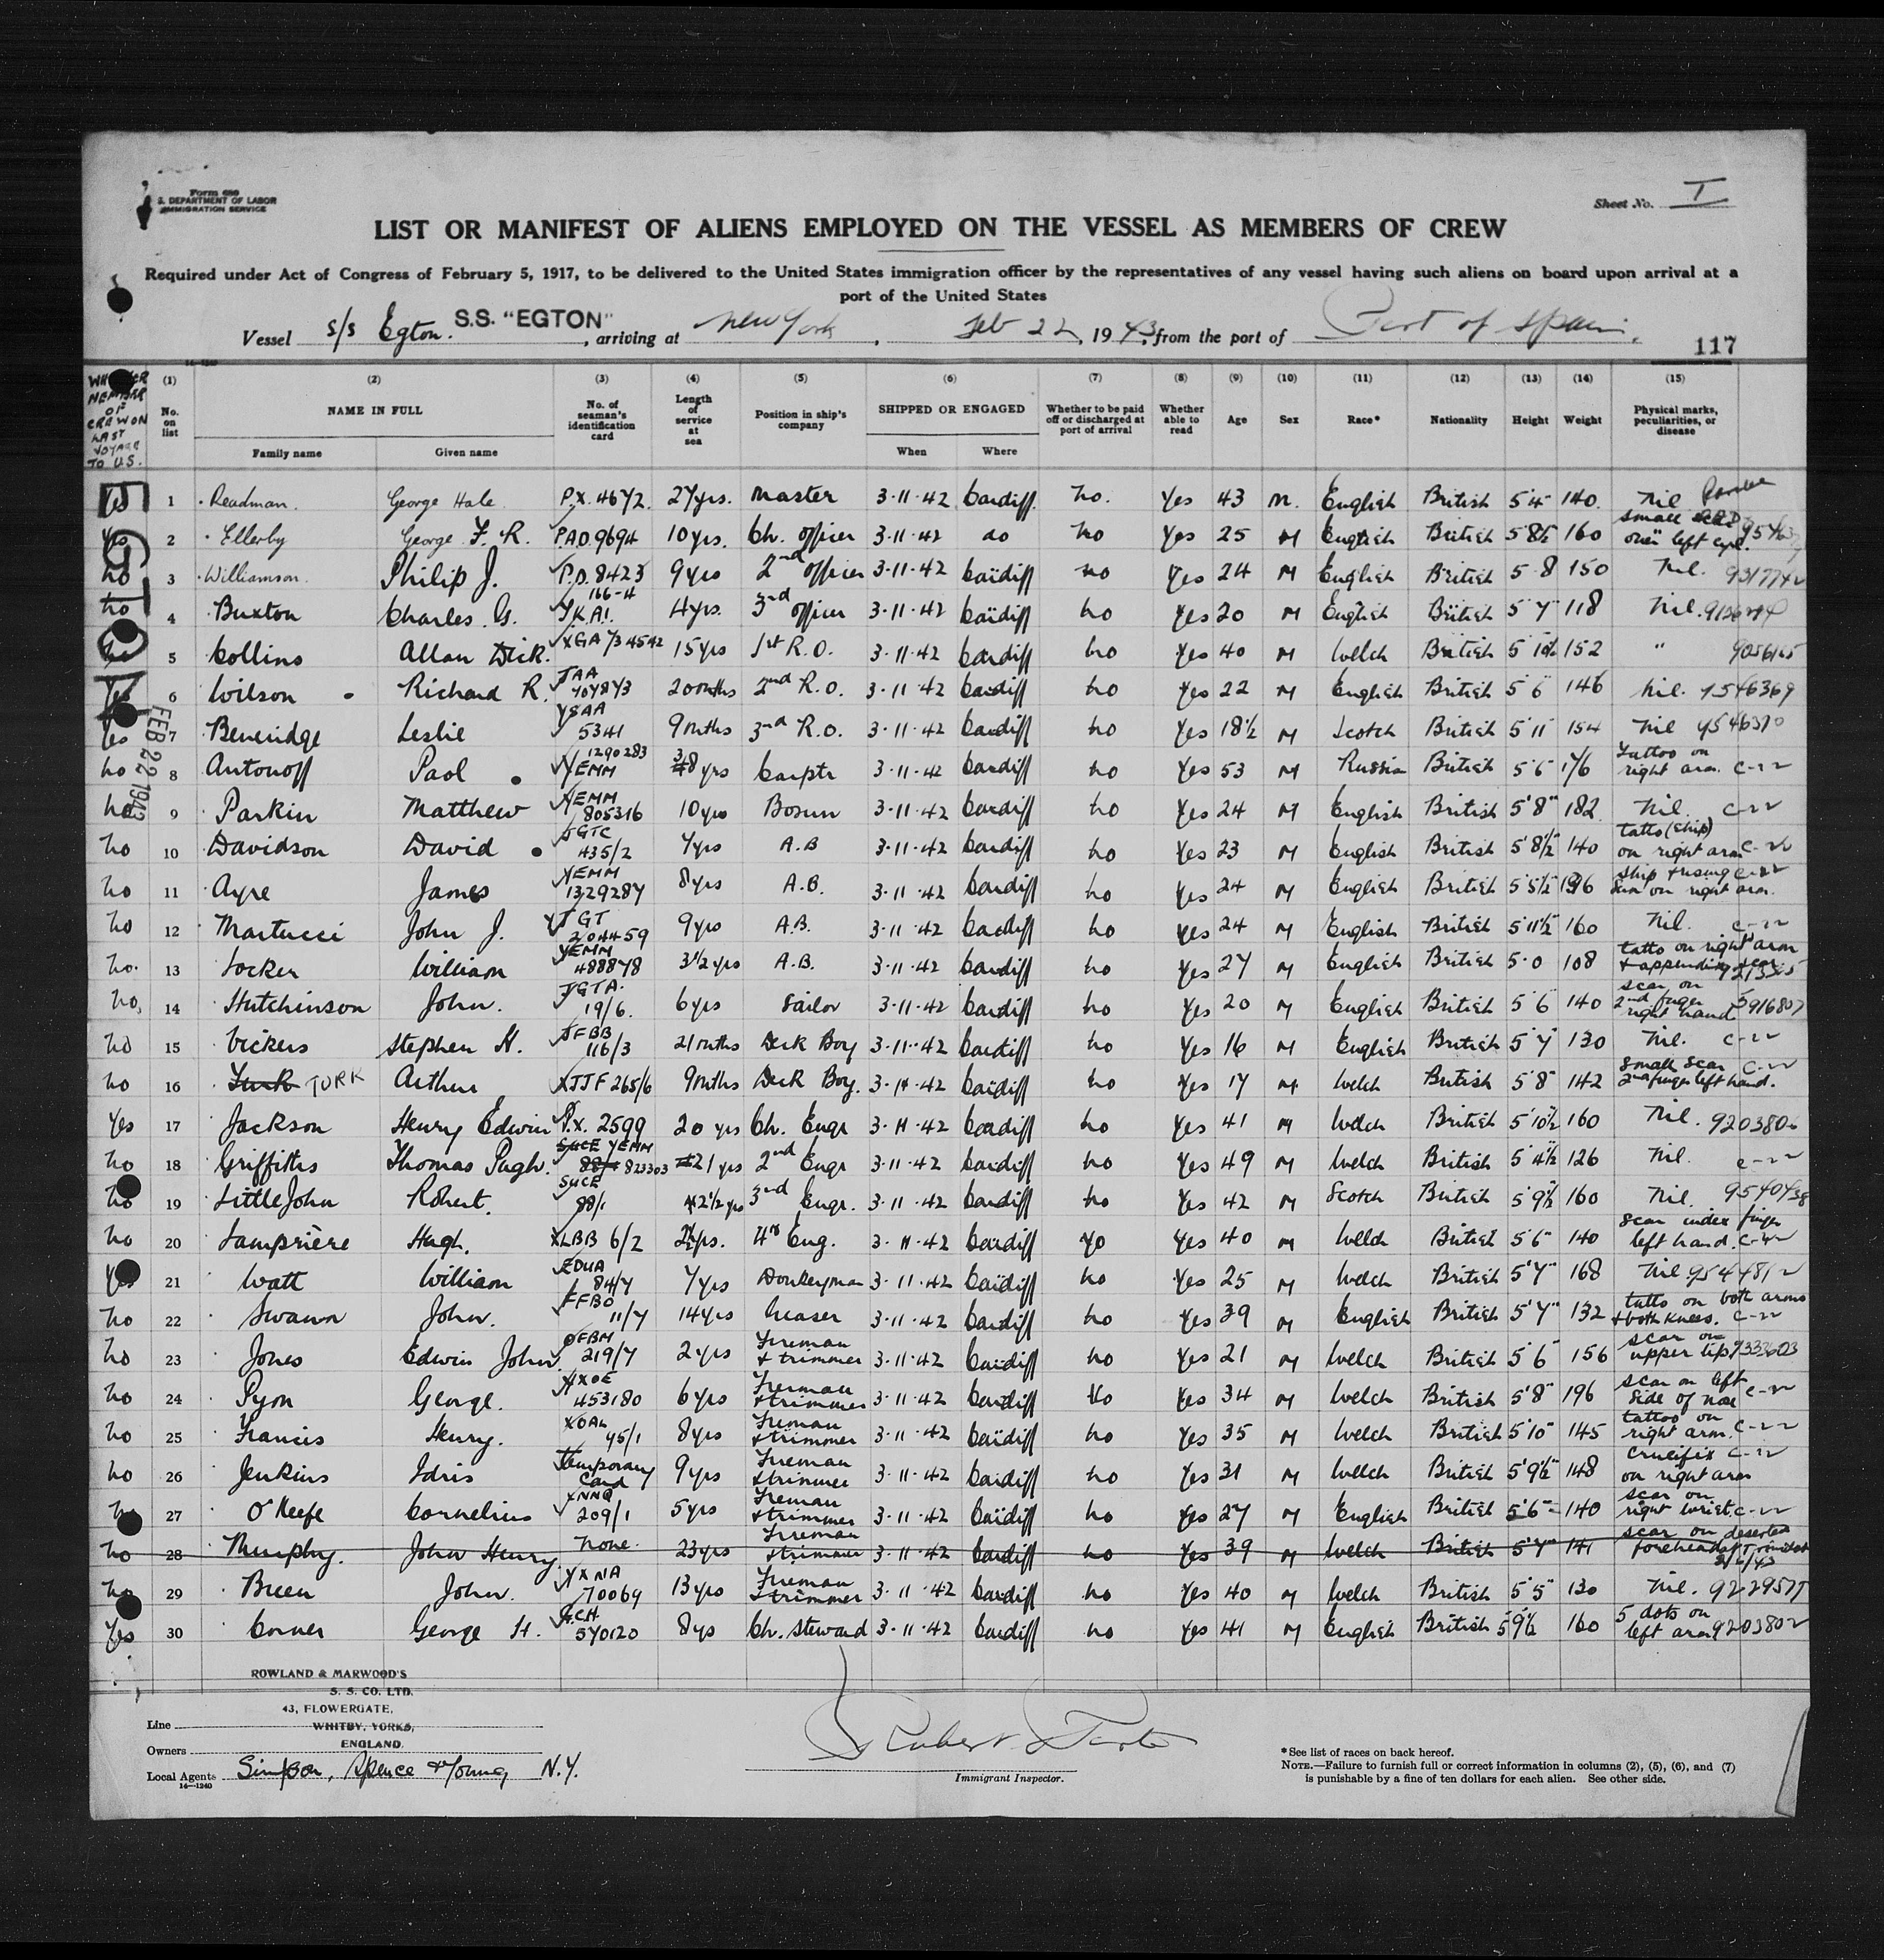 Form 680
S. DEPARTMENT OF LABOR
IMMIGRATION SERVICE
Sheet No. I
LIST OR MANIFEST OF ALIENS EMPLOYED ON THE VESSEL AS MEMBERS OF CREW
Required under Act of Congress of February 5, 1917, to be delivered to the United States immigration officer by the representatives of any vessel having such aliens on board upon arrival at a
port of the United States
Vessel s/s Egton. S.S. "EGTON", arriving at New York, Feb 22, 1943, from the port of Port of Spain.
117
WHETHER MEMBER OF CREW ON LAST VOYAGE TO U.S.
(1) No. on list (2) NAME IN FULL Family name Given name (3) No. of seaman's identification card (4) Length of service at sea (5) Position in ship's company (6) SHIPPED OR ENGAGED When Where (7) Whether to be paid off or discharged at port of arrival (8) Whether able to read (9) Age (10) Sex (11) Race* (12) Nationality (13) Height (14) Weight (15) Physical marks, peculiarities, or disease
FEB 22 1943
Yes 1 Readman. George Hale P.X. 4672. 27yrs. Master 3·11·42 Cardiff. No. Yes 43 M. English British 5'4" 140. Nil
Yes 2 Ellerby George F. R. P.A.D. 9694 10yrs. Ch. officer 3·11·42 do No Yes 25 M English British 5'8½ 160 small scar over left eye.
No 3 Williamson. Philip J. P.D. 8423 9yrs 2nd officer 3·11·42 Cardiff No Yes 24 M English British 5·8 150 Nil.
No 4 Buxton Charles G. YKA1. 166-4 4yrs. 3rd officer 3·11·42 Cardiff No Yes 20 M English British 5'7" 118 Nil.
5 Collins Allan Dick. XGA 73 4542 15yrs 1st R.O. 3·11·42 Cardiff No Yes 40 M Welch British 5'10½ 152 " 9056165
Yes 6 Wilson Richard R. JAA 404843 20mths 2nd R.O. 3·11·42 Cardiff No Yes 22 M English British 5'6" 146 Nil.
Yes 7 Beveridge Leslie YSAA 5341 9mths 3rd R.O. 3·11·42 Cardiff No Yes 18½ M Scotch British 5'11" 154 Nil 9546370
No 8 Antonoff Paol YEMM 1290283 38yrs Carptr 3·11·42 Cardiff No Yes 53 M Russia British 5'6" 176 Tattoo on right arm.
No 9 Parkin Matthew YEMM 805316 10yrs Bosun 3·11·42 Cardiff No Yes 24 M English British 5'8" 182 Nil.
No 10 Davidson David JGTC 435/2 7yrs A.B 3·11·42 Cardiff No Yes 23 M English British 5'8½" 140 tatto (ship) on right arm
No 11 Ayre James YEMM 1329287 8yrs A.B. 3·11·42 Cardiff No Yes 24 M English British 5'5½" 196 ship & rising sun on right arm.
No 12 Martucci John J. JGT 204459 9yrs A.B. 3·11·42 Cardiff No Yes 24 M English British 5'11½" 160 Nil.
No. 13 Locker William YEMM 488878 3½yrs A.B. 3·11·42 Cardiff No Yes 27 M English British 5·0 108 tatto on right arm & appendix scar
No, 14 Hutchinson John. JGTA. 19/6. 6yrs Sailor 3·11·42 Cardiff No Yes 20 M English British 5'6" 140 scar on 2nd finger right hand 5916807
No 15 Vickers Stephen H. JFBB 116/3 21mths Deck Boy 3·11·42 Cardiff No Yes 16 M English British 5'7" 130 Nil.
No 16 York TORK Arthur XJJF 265/6 9mths Deck Boy. 3·11·42 Cardiff No Yes 17 M Welch British 5'8" 142 small scar 2nd finger left hand.
Yes 17 Jackson Henry Edwin P.X. 2599 20 yrs Ch. Engr 3·11·42 Cardiff No Yes 41 M Welch British 5'10½ 160 Nil.
No 18 Griffiths Thomas Pugh. YEMM 823303 21yrs 2nd Engr 3·11·42 Cardiff No Yes 49 M Welch British 5'4½ 126 Nil.
No 19 LittleJohn Robert. SUCE 88/1 2½yrs 3rd Engr. 3·11·42 Cardiff No Yes 42 M Scotch British 5'9½ 160 Nil. 9540438
No 20 Lamprière Hugh. XLBB 6/2 4th Eng. 3·11·42 Cardiff Yes 40 M Welch British 5'6" 140 scar index finger left hand.
Yes 21 Watt William EDUA 84/7 7yrs Donkeyman 3·11·42 Cardiff No Yes 25 M Welch British 5'7" 168 Nil
No 22 Swann John. FFBO 11/7 14yrs Greaser 3·11·42 Cardiff No Yes 39 M English British 5'7" 132 tatto on both arms & both knees.
No 23 Jones Edwin John. OFBM 219/7 2yrs Fireman & trimmer 3·11·42 Cardiff No Yes 21 M Welch British 5'6" 156 scar on upper lip 9333603
No 24 Pyon George. AXOE 453180 6yrs Fireman & trimmer 3·11·42 Cardiff No Yes 34 M Welch British 5'8" 196 scar on left side of nose
No 25 Francis Henry. XOAL 45/1 8yrs Fireman & trimmer 3·11·42 Cardiff No Yes 35 M Welch British 5'10" 145 tattoo on right arm.
No 26 Jenkins Idris Temporary Card 9yrs Fireman & trimmer 3·11·42 Cardiff No Yes 31 M Welch British 5'9½" 148 crucifix on right arm
No 27 O'Keefe Cornelius XNNQ 209/1 5yrs Fireman & trimmer 3·11·42 Cardiff No Yes 27 M English British 5'6" 140 scar on right wrist.
No 28 Murphy. John Henry None. 23yrs Fireman & trimmer 3·11·42 Cardiff No Yes 39 M Welch British 5'7" 141 scar on forehead deserted at Trinidad
No 29 Breen John. YXNA 70069 13yrs Fireman & trimmer 3·11·42 Cardiff No Yes 40 M Welch British 5'5" 130 Nil. 9229575
Yes 30 Corner George H. 570120 8yrs Ch. Steward 3·11·42 Cardiff No Yes 41 M English British 5'9½ 160 5 dots on left arm 9203802
ROWLAND & MARWOOD'S
S. S. CO. LTD.
43, FLOWERGATE,
Line WHITBY, YORKS,
Owners ENGLAND.
Local Agents Simpson, Spence & Young, N.Y.
14—1240
Immigrant Inspector.
*See list of races on back hereof.
NOTE.—Failure to furnish full or correct information in columns (2), (5), (6), and (7)
is punishable by a fine of ten dollars for each alien. See other side.